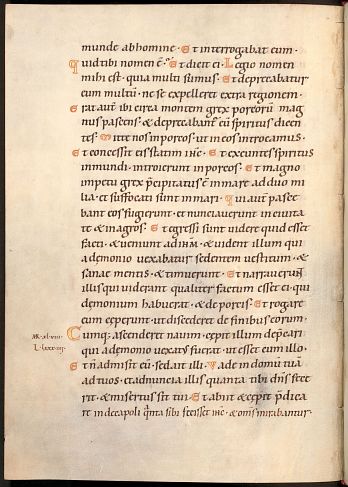 munde ab homine · Et interrogabat eum ·
quid tibi nomen ē · Et dicit ei · Legio nomen
mihi est · quia multi sumus · Et deprecabatur
eum multū · ne se expelleret extra regionem ·
Erat autē ibi circa montem grex porcorū mag
nus pascens · & deprecabant' eū spiritus dicen
tes · Mitte nos in porcos · ut in eos introeamus ·
Et concessit eis statim ihc · Et exeuntes spiritus
inmundi · introierunt in porcos · Et magno
impetu grex p̄cipitatus ē in mare ad duo mi
lia · et suffocati sunt in mari · Qui autē pasce
bant eos fugerunt · et nunciauerunt in ciuita
te & in agros · Et egressi sunt uidere quid esset
facti · & ueniunt ad ihm̄ · & uident illum qui
a demonio uexabatur sedentem uestitum · &
sanae mentis · & timuerunt · Et narrauerunt
illis qui uiderant qualiter factum esset ei · qui
demonium habuerat · & de porcis · Et rogare
eum ceperunt · ut discederet de finibus eorum ·
Cumq; ascenderet nauim · cepit illum dep̄cari
qui a demonio uexatus fuerat · ut esset cum illo ·
Et ñ admisit eū · sed ait illi · Vade in domū tuā
ad tuos · et adnuncia illis quanta tibi dn̄s fece
rit · & misertus sit tui · Et abiit & cepit p̄dica
re in decapoli q̄nta sibi fecisset ihc · & om̄s mirabantur ·